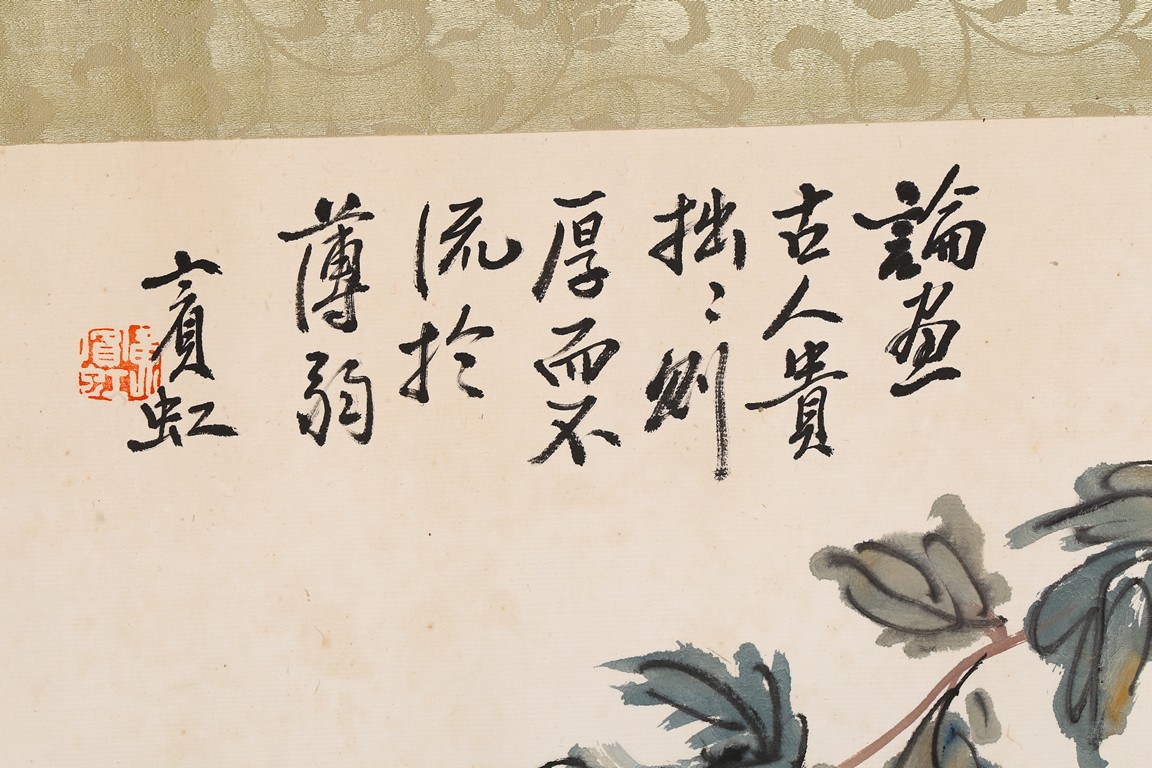 論畫
古人貴
拙〻則
厚而不
流於
薄弱
賓虹